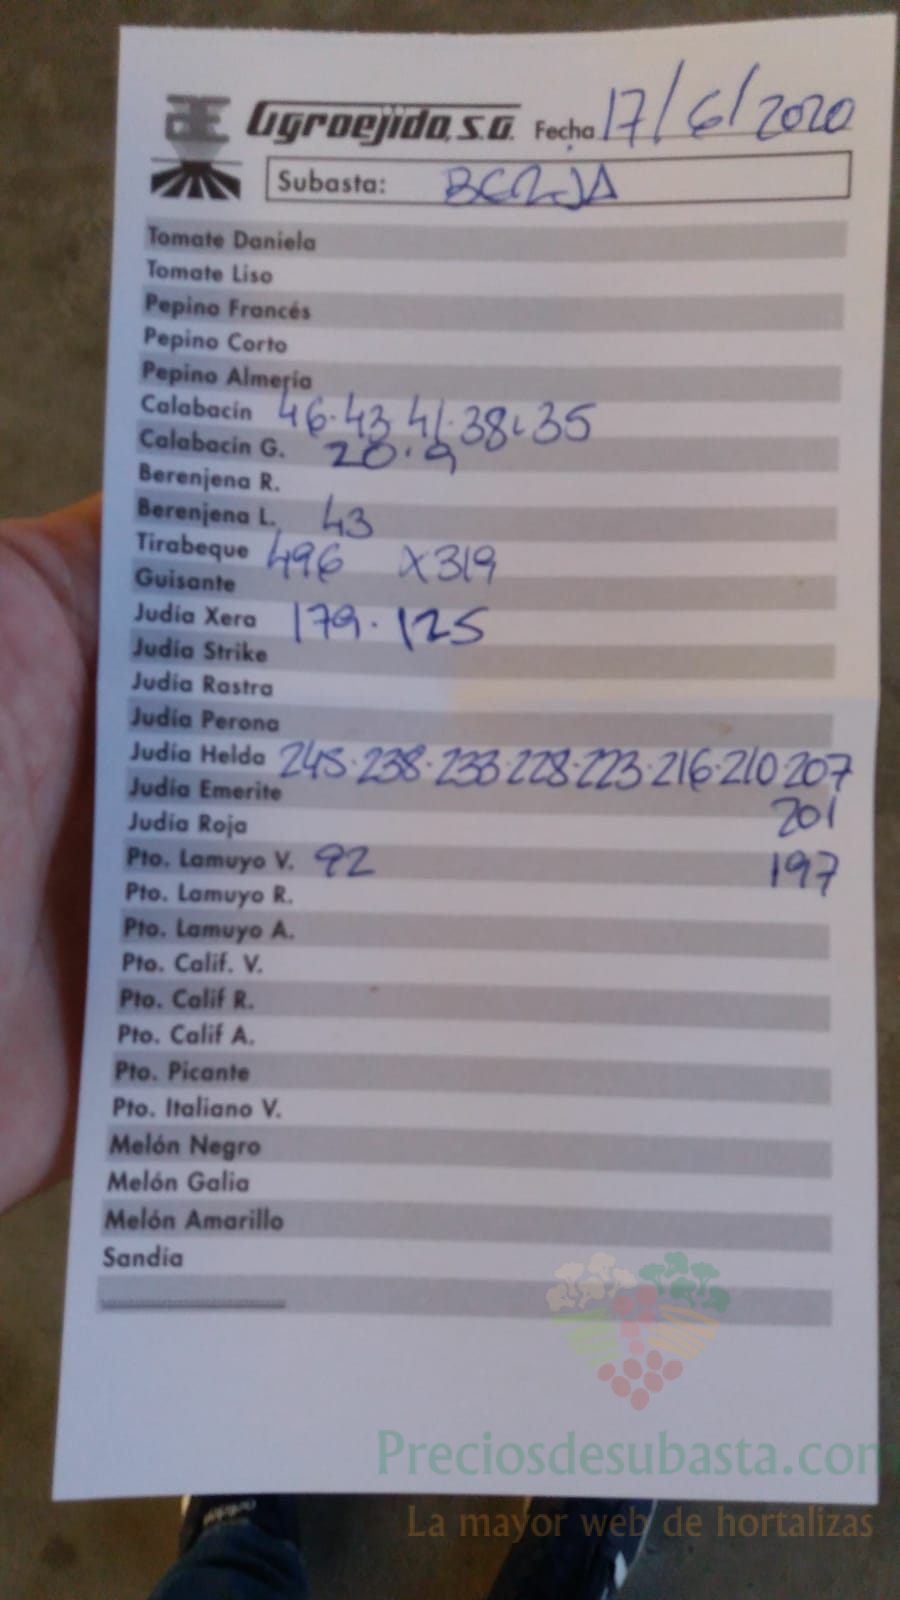 Agroejido, S.A. Fecha 17/6/2020
Subasta: BERJA
Tomate Daniela
Tomate Liso
Pepino Francés
Pepino Corto
Pepino Almería
Calabacín 46·43 41·38·35
Calabacín G. 20·9
Berenjena R.
Berenjena L. 43
Tirabeque 496 X319
Guisante
Judía Xera 179·125
Judía Strike
Judía Rastra
Judía Perona
Judía Helda 245·238·233·228·223·216·210 207
Judía Emerite 201
Judía Roja
Pto. Lamuyo V. 92 197
Pto. Lamuyo R.
Pto. Lamuyo A.
Pto. Calif. V.
Pto. Calif R.
Pto. Calif A.
Pto. Picante
Pto. Italiano V.
Melón Negro
Melón Galia
Melón Amarillo
Sandía
Preciosdesubasta.com
La mayor web de hortalizas